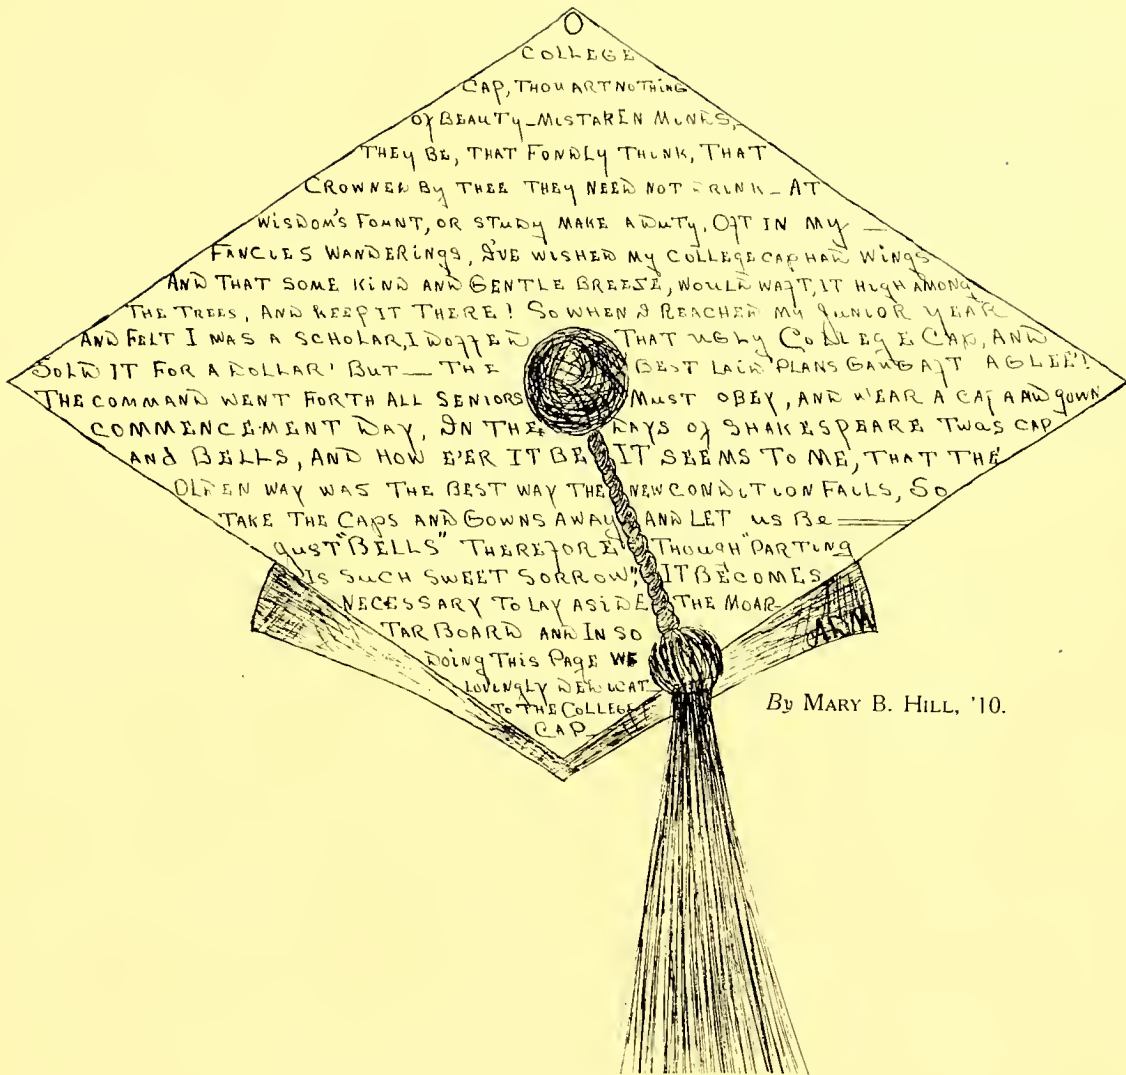 O
COLLEGE
CAP, THOU ART NOTHING
OF BEAUTY_MISTAKEN MINDS,
THEY BE, THAT FONDLY THINK, THAT
CROWNED BY THEE THEY NEED NOT DRINK_AT
WISDOM'S FOUNT, OR STUDY MAKE A DUTY, OFT IN MY _
FANCIES WANDERINGS, I'VE WISHED MY COLLEGE CAP HAD WINGS
AND THAT SOME KIND AND GENTLE BREEZE, WOULD WAFT, IT HIGH AMONG
THE TREES, AND KEEP IT THERE! SO WHEN I REACHED MY JUNIOR YEAR
AND FELT I WAS A SCHOLAR, I DOFFED THAT UGLY COLLEGE CAP, AND
SOLD IT FOR A DOLLAR! BUT_THE "BEST LAID PLANS GANG AFT AGLEE"!
THE COMMAND WENT FORTH ALL SENIORS MUST OBEY, AND WEAR A CAP AND GOWN
COMMENCEMENT DAY, IN THE DAYS OF SHAKESPEARE TWAS CAP
AND BELLS, AND HOW E'ER IT BE IT SEEMS TO ME, THAT THE
OLDEN WAY WAS THE BEST WAY THE NEW CONDITION FAILS, SO
TAKE THE CAPS AND GOWNS AWAY AND LET US BE
JUST "BELLS" THEREFORE THOUGH "PARTING
IS SUCH SWEET SORROW", IT BECOMES
NECESSARY TO LAY ASIDE THE MOAR-
TAR BOARD AND IN SO
DOING THIS PAGE WE
LOVINGLY DEDICAT
TO THE COLLEGE
CAP
By MARY B. HILL, '10.